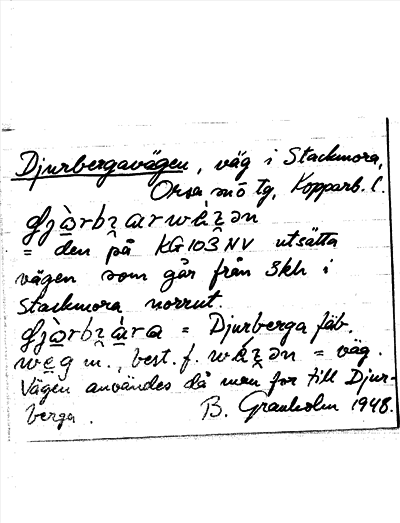 Djurbergavägen, väg i Stackmora,
Orsa sn ö tg, Kopparb. l.
= den på KG103NV utsätta
vägen som går från Skh i
Stackmora norrut.
= Djurberga fäb.
m., best. f. = väg.
Vägen användes då man for till Djur-
berga.
B. Granholm 1948.